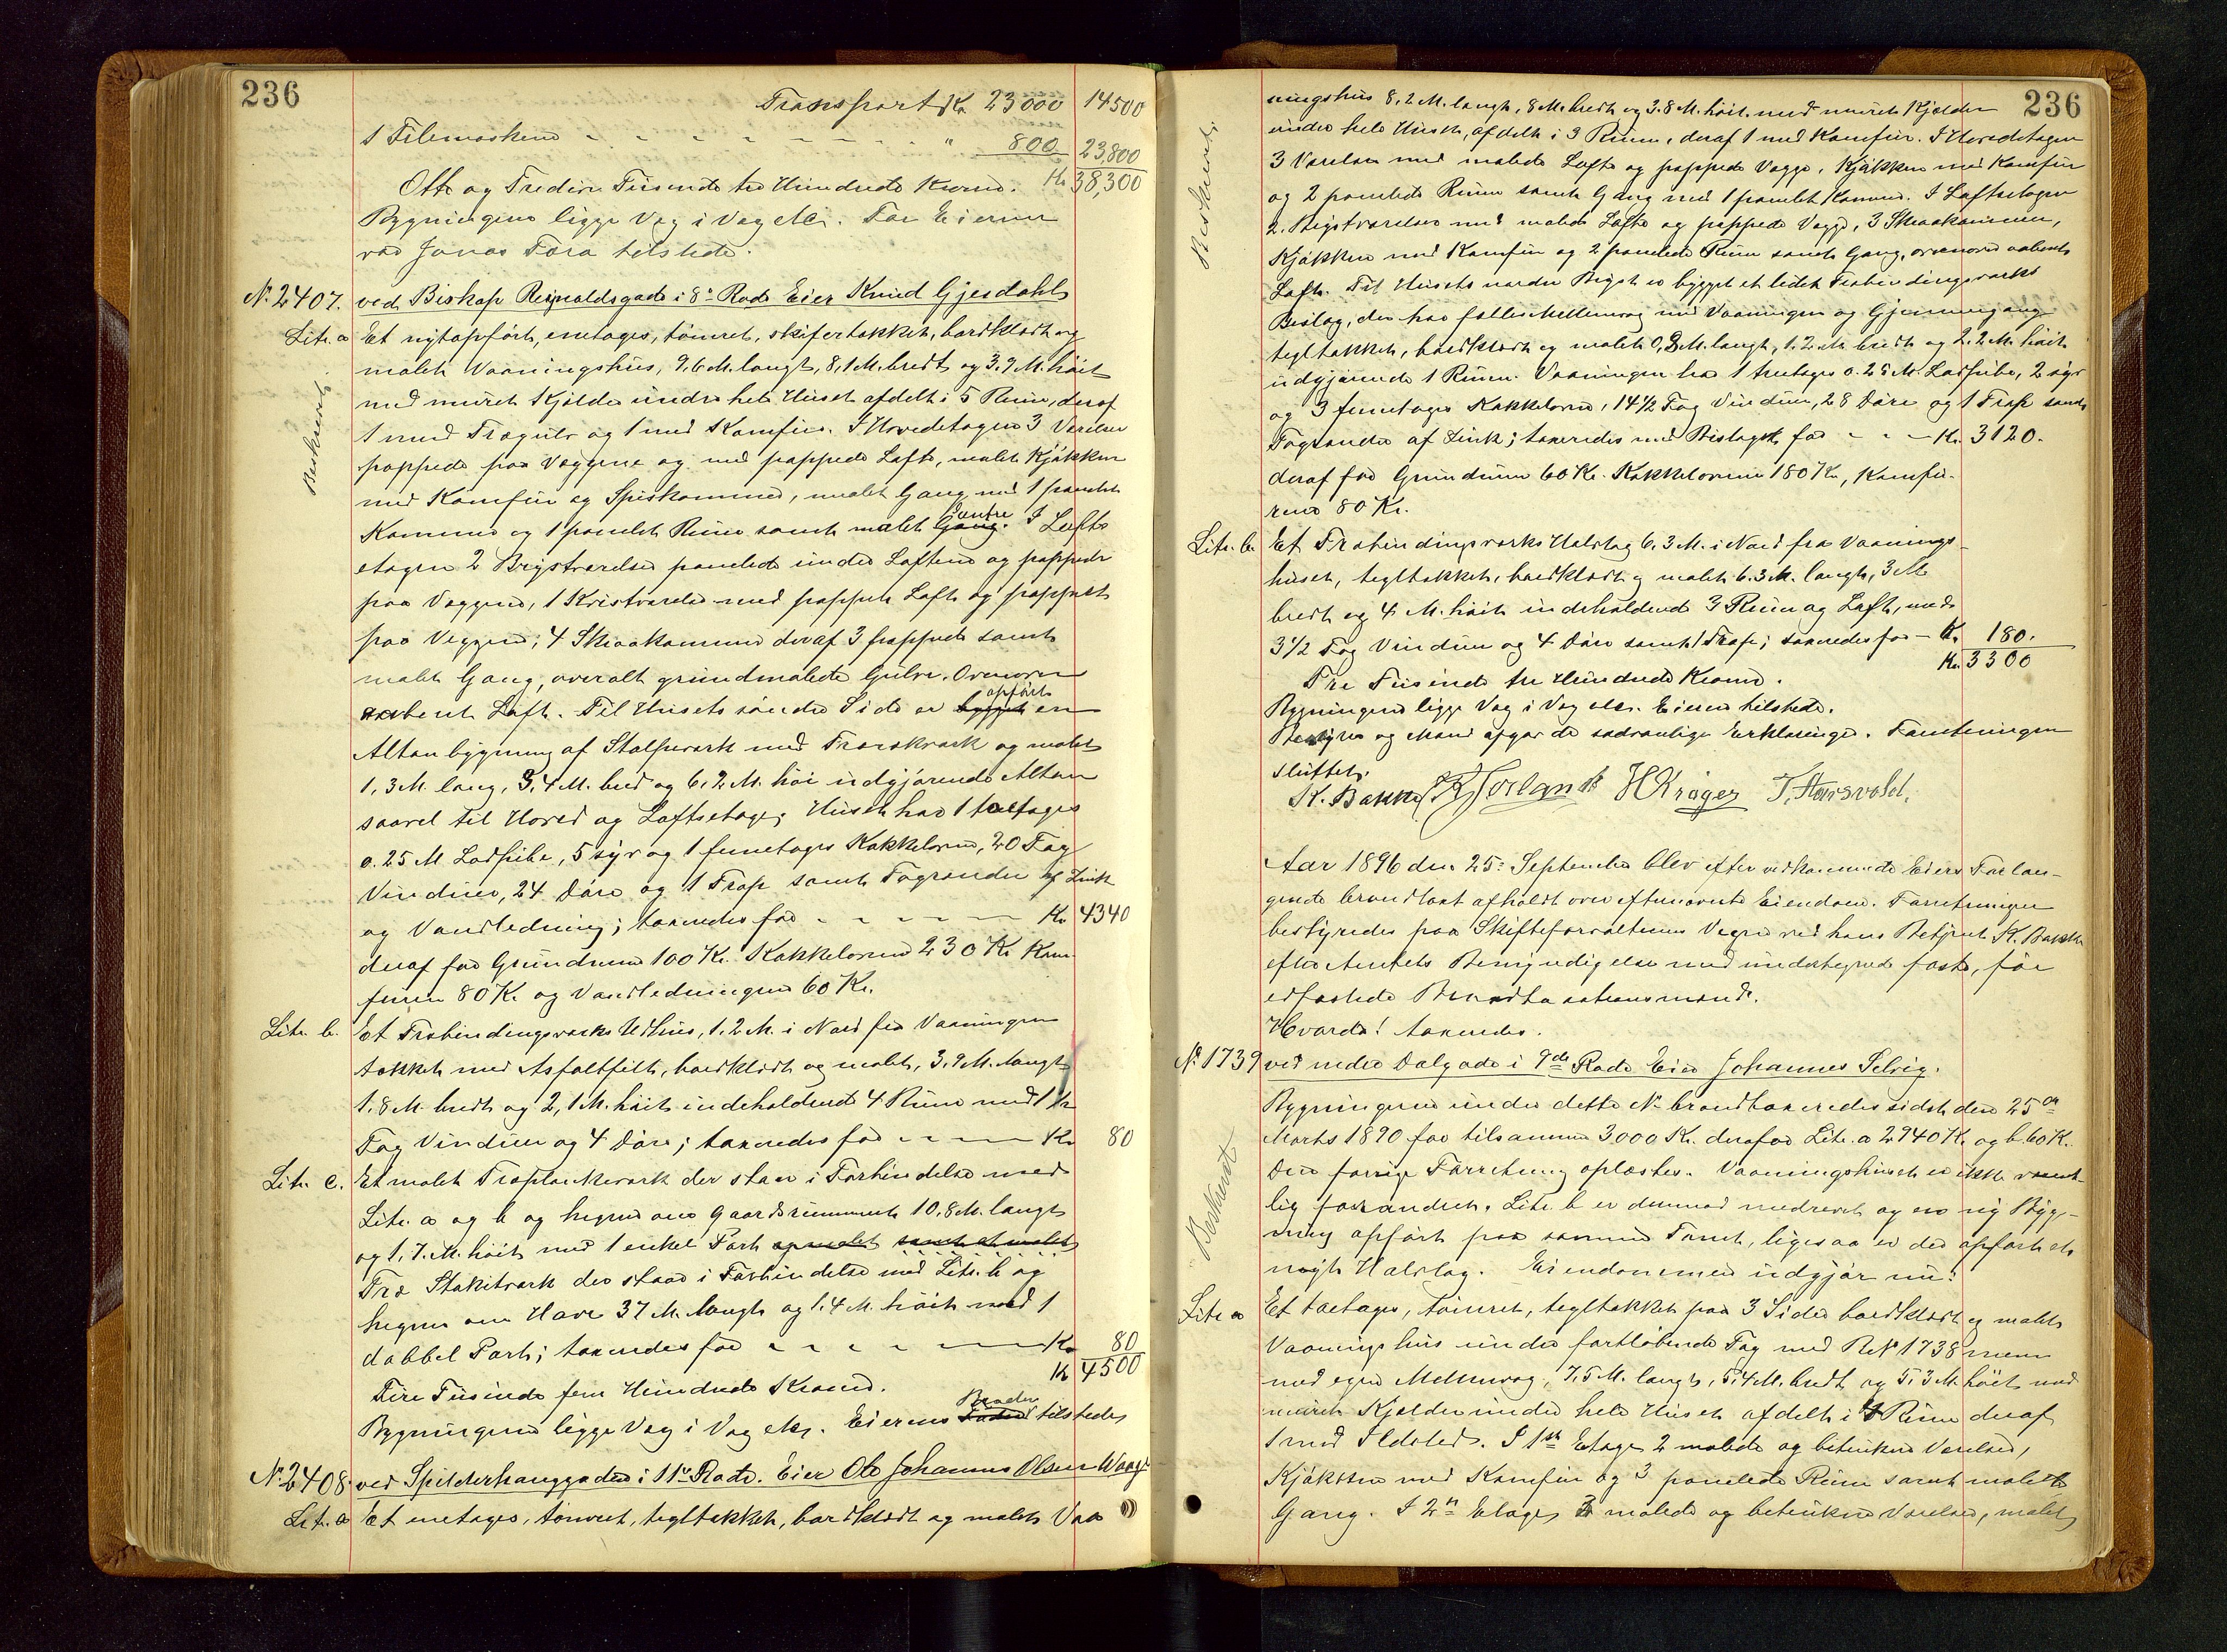 236
Transport Kr. 23000 14500
1 Filemaskine " 800 23,800
Otte og Tredive Tusinde tre Hundrede Kroner. Kr 38,300
Bygningerne ligge Væg i Væg etc. For Eieren
var Jonas Fora tilstede.
No. 2407. ved Biskop Reinaldsgade i 8de Rode Eier Knud Gjesdahl
Litr. a Et nytopført, enetages, tømret, skifertækket, bordklædt og
malet Vaaningshus, 9,6 M. langt, 8,1 M. bredt og 3.9 M. høit
Beskrevet.
med muret Kjelder under hele Huset afdelt i 5 Rum, deraf
1 med Trægulv og 1 med Komfur. I Hovedetagen 3 Værelser
pappede paa Væggene og med pappede Lofte, malet Kjøkken
med Komfur og Spiskammer, malet Gang med 1 panelet
Kammer og 1 panelet Rum samt malet Gang. Entre I Lofts
etagen 2 Brystværelser panelede under Loftene og pappede
paa Væggene, 1 Kvistværelse med pappet Loft og pappet
paa Væggene; 4 Skraakammere deraf 3 pappede samt
malet Gang, overalt grundmalede Gulve. Ovenover
aabent Loft. Til Husets søndre Side er bygget opført en
Altanbygning af Stolpeværk med Træværk og malet
1,3 M. lang, 3,4 M. bred og 6,2 M. høi udgjørende Altan
saavel til Hoved og Loftsetage; Huset har 1 toetages
0.25 M Lodpibe, 5 syv og 1 femetages Kakkelovne, 20 Fag
Vinduer, 24 Døre og 1 Trap samt Tagrender af Zink
og Vandledning; taxeredes for Kr 4340
deraf for Grundmur 100 Kr. Kakkelovne 230 Kr. Kom
furen 80 Kr. og Vandledningen 60 Kr.
Litr. b. Et Frabindingsværks Udhus, 1.2 M. i Nord fra Vaaningen
tækket med Asfaltfilt, bordklædt og malet, 3.9 M. langt
1.8 M. bredt og 2,1 M. høit indeholdende 4 Rum med 1 1/2
Fag Vinduer og 4 Døre; taxeredes for Kr 80
Litr. c. Et malet Træplankeværk der staar i Forbindelse med
Litr. a og b og hegner om Gaardsrummet 10.8 M. langt
og 1,7 M. høit med 1 enkel Port samt et malet
Træ Stakitværk der staar i Forbindelse med Litr. b og
hegner om Have 37 M. langt og 1.4 M. høit med 1
dobbel Port; taxeredes for Kr 80
Kr 4500
Fire Tusinde fem Hundrede Kroner.
Bygningerne ligge Væg i Væg etc. Eierens Broder tilstede
No. 2408. ved Spilderhauggaden i 11te Rode. Eier Ole Johannes Olsen Waage
Litr. a Et enetages, tømret, tegltækket, bordklædt og malet Vaa
236
ningshus 8.2 M. langt, 8 M. bredt og 3.8 M. høit med muret Kjælder
under hele Huset, afdelt i 3 Rum, deraf 1 med Komfur. I Hovedetagen
Beskrevet.
3 Værelser med malede Lofte og pappede Vægge, Kjøkken med Komfur
og 2 panelede Rum samt Gang med 1 panelet Kammer. I Loftsetagen
2 Brystværelser med malede Lofte og pappede Vægge, 3 Skraakammere,
Kjøkken med Komfur og 2 panelede Rum samt Gang, ovenover aabent
Loft. Til Husets nordre Bryst er bygget et lidet Frabindingsværks
Bislag, der har fælles Mellemvæg med Vaaningen og Gjennemgang
tegltækket, bordklædt og malet 0,8 M. langt, 1.2 M. bredt og 2.2 M. høit
udgjørende 1 Rum. Vaaningen har 1 treetages 0.25 M. Lodpibe, 2 syv
og 3 femetages Kakkelovne, 14 1/2 Fag Vinduer, 28 Døre og 1 Trap samt
Tagrender af Zink; taxeredes med Bislaget for Kr. 3120.
deraf for Grundmur 60 Kr. Kakkelovnene 180 Kr., Komfu-
rene 80 Kr.
Litr. b. Et Frabindingsværks Halvtag 6.3 M. i Nord fra Vaanings-
huset, tegltækket, bordklædt og malet 6.3 M. langt, 3 M.
bredt og 4 M. høit indeholdende 3 Rum og Loft, med
3 1/2 Fag Vinduer og 4 Døre samt 1 Trap; taxeredes for Kr. 180.
Kr. 3300
Tre Tusinde tre Hundrede Kroner.
Bygningerne ligge Væg i Væg etc. Eieren tilstede.
Bestyrer og Mænd afgav de sædvanlige Erklæringer. Forretningen
sluttet.
K. Bakke H Krøger
Aar 1896 den 25de September blev efter vedkommende Eieres Forlan-
gende brandtaxt afholdt over eftermævnte Eiendom. Forretningen
bestyredes paa Skifteforvalterens Vegne ved hans Betjent K. Bakke
efter Amtets Bemyndigelse med undertegnede faste, før
edfæstede Brandtaxationsmænd.
Hvorda! taxeredes.
No. 1739 ved nedre Dalgade i 9de Rode Eier Johannes Selvig.
Bygningerne under dette No. brandtaxeredes sidst den 25de
Marts 1890 for tilsammen 3000 Kr. deraf for Litr. a 2940 Kr. og b. 60 K.
Beskrevet
Den forrige Forretning oplæstes. Vaaningshuset er ikke væsent-
lig forandret. Litr. b er derimod nedrevet og en ny Byg-
ning opført paa samme Tomt, ligesaa er der opført et
nyt Halvtag. Eiendommen udgjør nu:
Litr. a Et toetages, tømret, tegltækket paa 3 Sider bordklædt og malet
Vaaningshus under fortløbende Tag med R.No 1738 men
med egen Mellemvæg, 7,5 M. langt, 5,4 M. bredt og 5,3 M. høit med
muret Kjælder under hele Huset afdelt i Rum deraf
1 med Ildsted. I 1ste Etage 2 malede og betrukne Værelser,
Kjøkken med Komfur og 3 panelede Rum samt malet
Gang. I 2den Etage malede og betrukne Værelser, malet